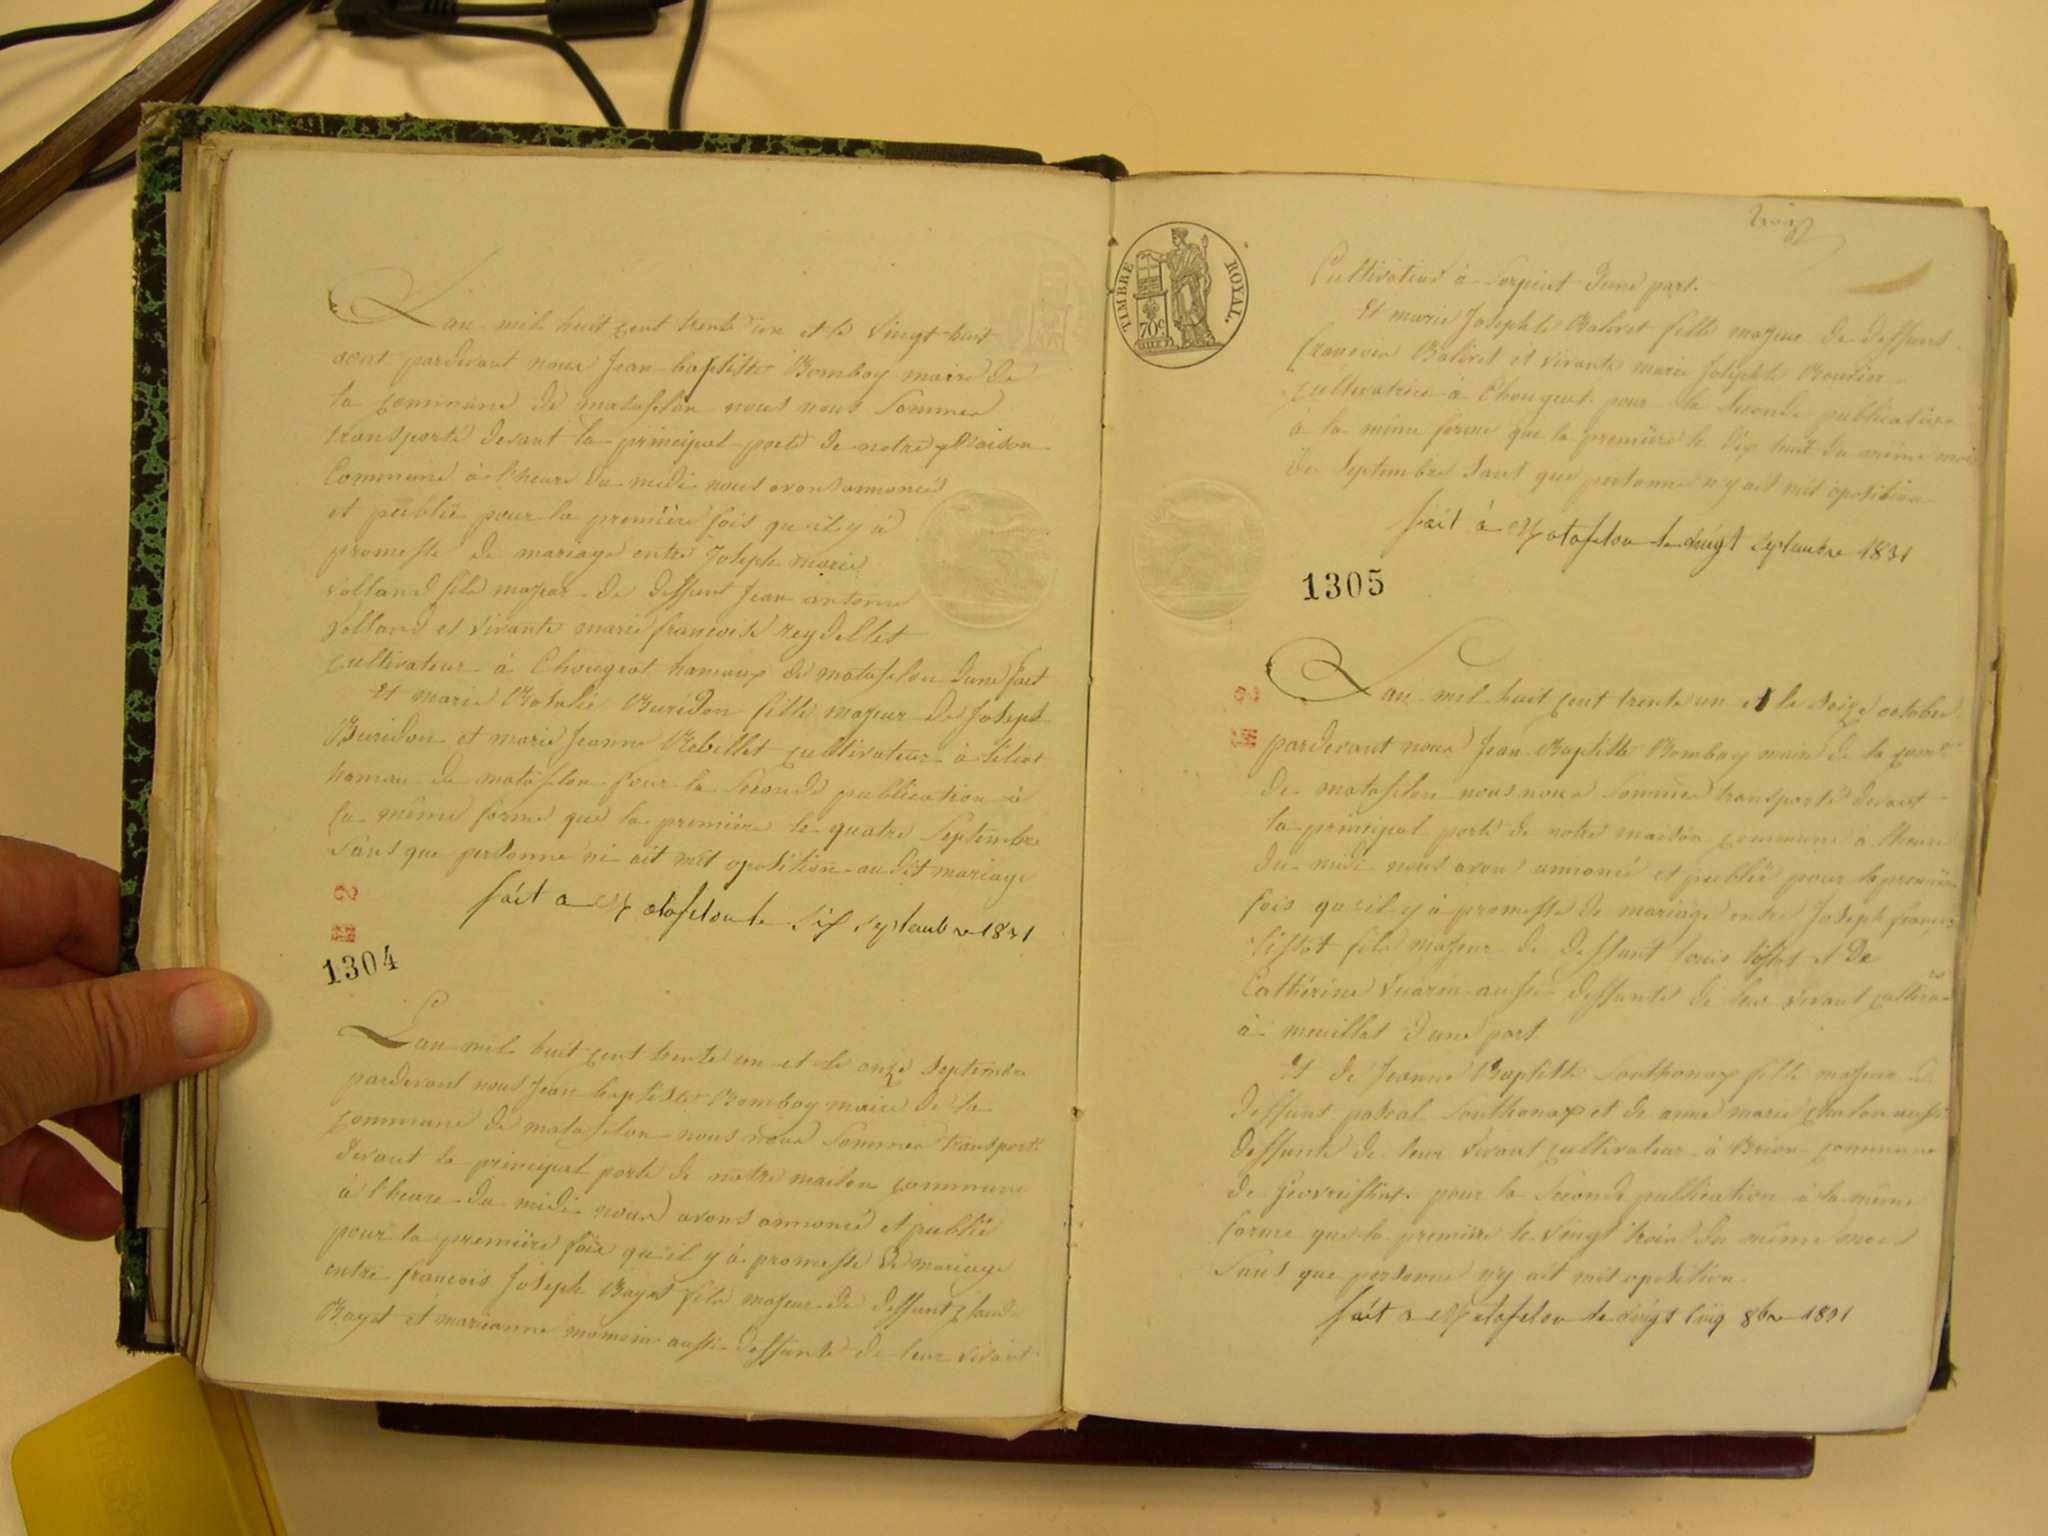 L'an mil huit cent trente un et le vingt huit
aout pardevant nous Jean baptiste Bomboy maire de
la commune de matafelon nous nous sommes
transporté devant la principal porte de notre Maison
Commune à l'heure du midi nous avons annoncés
et publié pour la première fois qu'il y à
promesse de mariage entre Joseph marie
volland fils majeur de deffunt Jean antoine
Volland et vivante marie francoise reydellet
cultivateur à Chougeat hamaux de matafelon dune part
Et marie Rosalie Buridon fille majeur de Joseph
Buridon et marie Jeanne Rebillet cultivateur à
hameau de matafelon pour la seconde publication à
la même forme que la première le quatre Septembre
sans que personne ni ait mit oposition au dit mariage
fait a Matafelon le Six Septembre 1831
1304
L'an mil huit cent trente un et le onze Septembre
pardevant nous Jean baptiste Bomboy maire de la
commune de matafelon nous nous sommes transporté
devant la principal porte de notre maison commune
à l'heure du midi nous avons annoncé et publié
pour la première fois qu'il y à promesse de mariage
entre francois Joseph Bayet fils majeur de deffunt Claude
Bayet et marianne aussi deffunte de leur vivant
TIMBRE ROYAL.
70c
Cultivateur à Sorpiat dune part.
Et marie Josephte Baliret fille majeur de deffunt
francois Baliret et vivante marie Josephte
cultivatrice à Chougeat pour la seconde publication
à la même forme que la première le dix huit du même mois
de Septembre sans que personne n'y ait mit oposition
fait à Matafelon le vingt Septembre 1831
1305
L'an mil huit cent trente un et le seize octobre
pardevant nous Jean Baptiste Bomboy maire de la comne
de matafelon nous nous sommes transporté devant
la principal porte de notre maison commune à l'heure
du midi nous avons annoncé et publié pour la première
fois qu'il y à promesse de mariage entre Joseph francois
tissot fils majeur de deffunt louis tissot et De
Cathérine vuarin aussi deffunte de leur vivant cultivrs
à meuillat dune part
Et de Jeanne Baptiste Southonax fille majeur de
deffunt pascal Southonax et de anne marie chalon aussi
deffunte de leur vivant cultivateur à Brion commune
de Geovreissiat pour la seconde publication à la même
forme que la première le vingt trois du même mois
sans que personne n'y ait mit oposition.
fait a Matafelon le vingt Cinq 8bre 1831